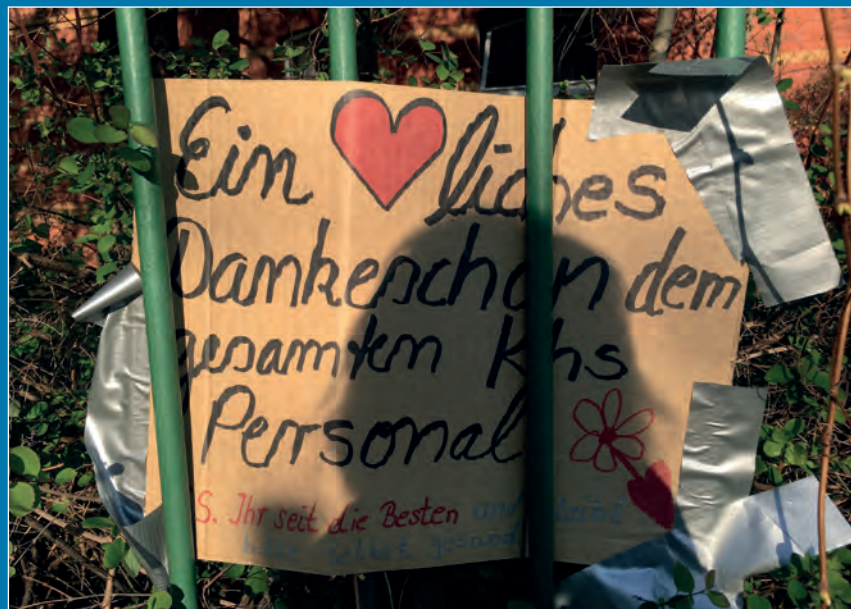 Ein ❤liches
Dankeschön dem
gesamten Khs
Personal
S. Ihr seit die Besten und bleibt
bitte selbst gesund